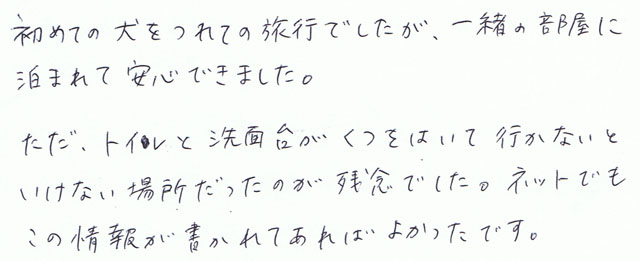 初めての犬をつれての旅行でしたが、一緒の部屋に
泊まれて安心できました。
ただ、トイレと洗面台がくつをはいて行かないと
いけない場所だったのが残念でした。ネットでも
この情報が書かれてあればよかったです。